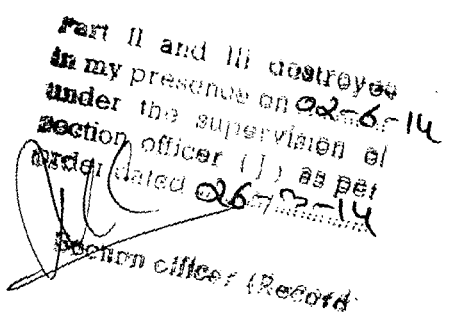 Part II and III destroyed
in my presence on 02-6-14
under the supervision of
section officer (J) as per
order dated
Section officer (Record